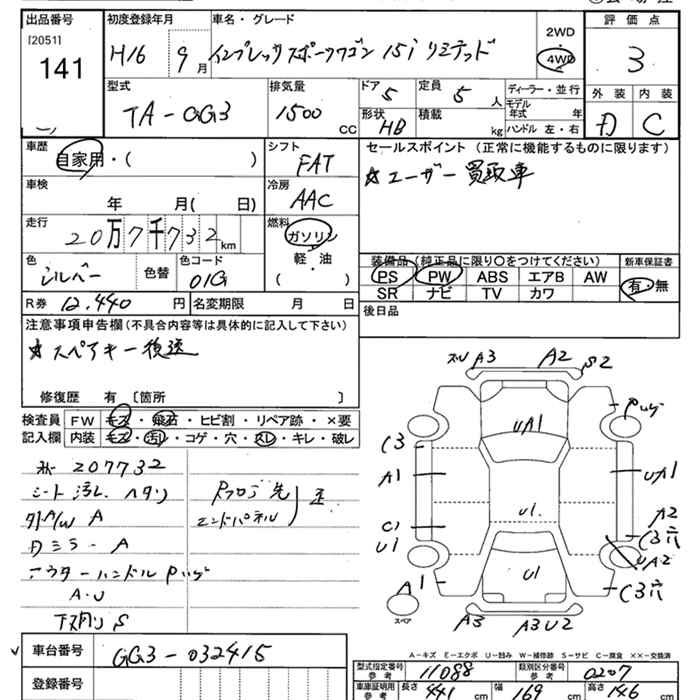 出品番号 初度登録年月 車名・グレード 評価点
[2051]
141
H16 9月 インプレッサスポーツワゴン 15i リミテッド 2WD 4WD 3
型式 排気量 ドア 5 定員 5人 ディーラー・並行 外装 内装
TA-GG3 1500cc 形状 HB 積載 kg モデル年式 年 C
ハンドル 左・右
車歴 自家用・( ) シフト FAT セールスポイント(正常に機能するものに限ります)
★ユーザー買取車
車検 年 月( 日) 冷房 AAC
走行 20万7千732km 燃料 ガソリン・軽・油 ( )
装備品(純正品に限り○をつけてください) 新車保証書
色 シルバー 色替 色コード 01G PS PW ABS エアB AW 有・無
SR ナビ TV カワ
R券 12,440円 名変期限 月 日 後日品
注意事項申告欄(不具合内容等は具体的に記入して下さい)
★スペアキー後送
修復歴 有〔箇所 〕
検査員 FW キズ・飛石・ヒビ割・リペア跡・×要
記入欄 内装 キズ・汚レ・コゲ・穴・スレ・キレ・破レ
207732
シート汚レ ヘタリ
A
ミラーA
アウターハンドル
A・U
S
エンドパネル
A3 A2 S2
UA1
C3
A1 UA1
C1 U1 A2
U1 C3穴
UA2
A1 U1 C3穴
スペア
A3 A3U2
A-キズ E-エクボ U-凹み W-補修跡 S-サビ C-腐食 ××-交換済
車台番号 GG3-032415
登録番号
型式指定番号 参考 11088 類別区分番号 参考 0207
車庫証明用 参考 長さ 441cm 幅 169cm 高さ 146cm